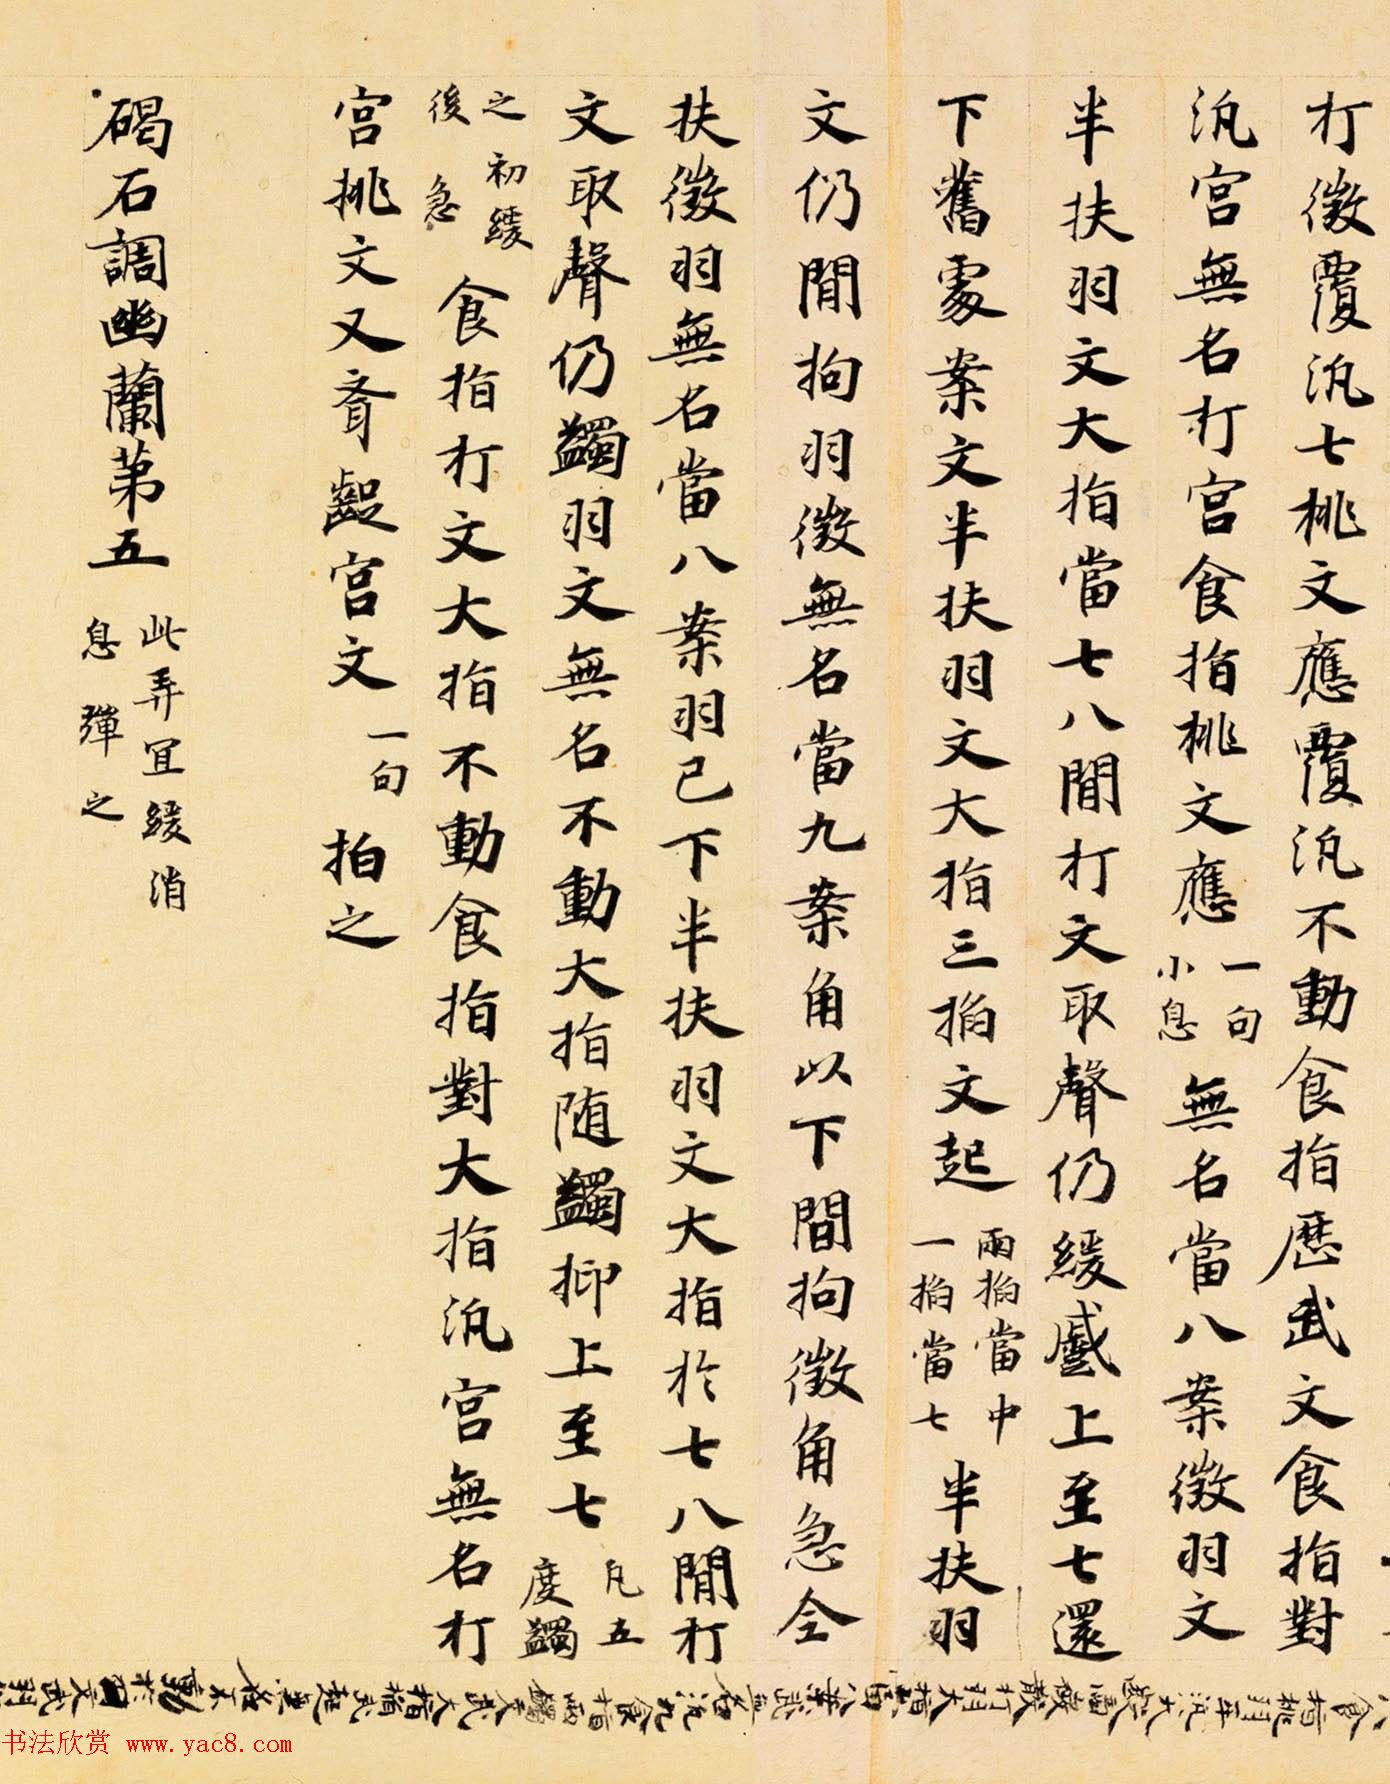 打徵覆汎七挑文應覆汎不動食指歷武文食指對
汎宮無名打宮食指挑文應一句小息無名當八案徵羽文
半扶羽文大指當七八間打文取聲仍緩蹙上至七還
下舊處案文半扶羽文大指三搯文起兩搯當中一搯當七半扶羽
文仍間拘羽徵無名當九案角以下間拘徵角急全
扶徵羽無名當八案羽已下半扶羽文大指於七八間打
文取聲仍蠲羽文無名不動大指随蠲抑上至七凡五度蠲
之初緩後急食指打文大指不動食指對大指汎宮無名打
宮挑文又齊齪宮文一句拍之
碣石調幽蘭第五此弄宜緩消息彈之
书法欣赏 www.yac8.com